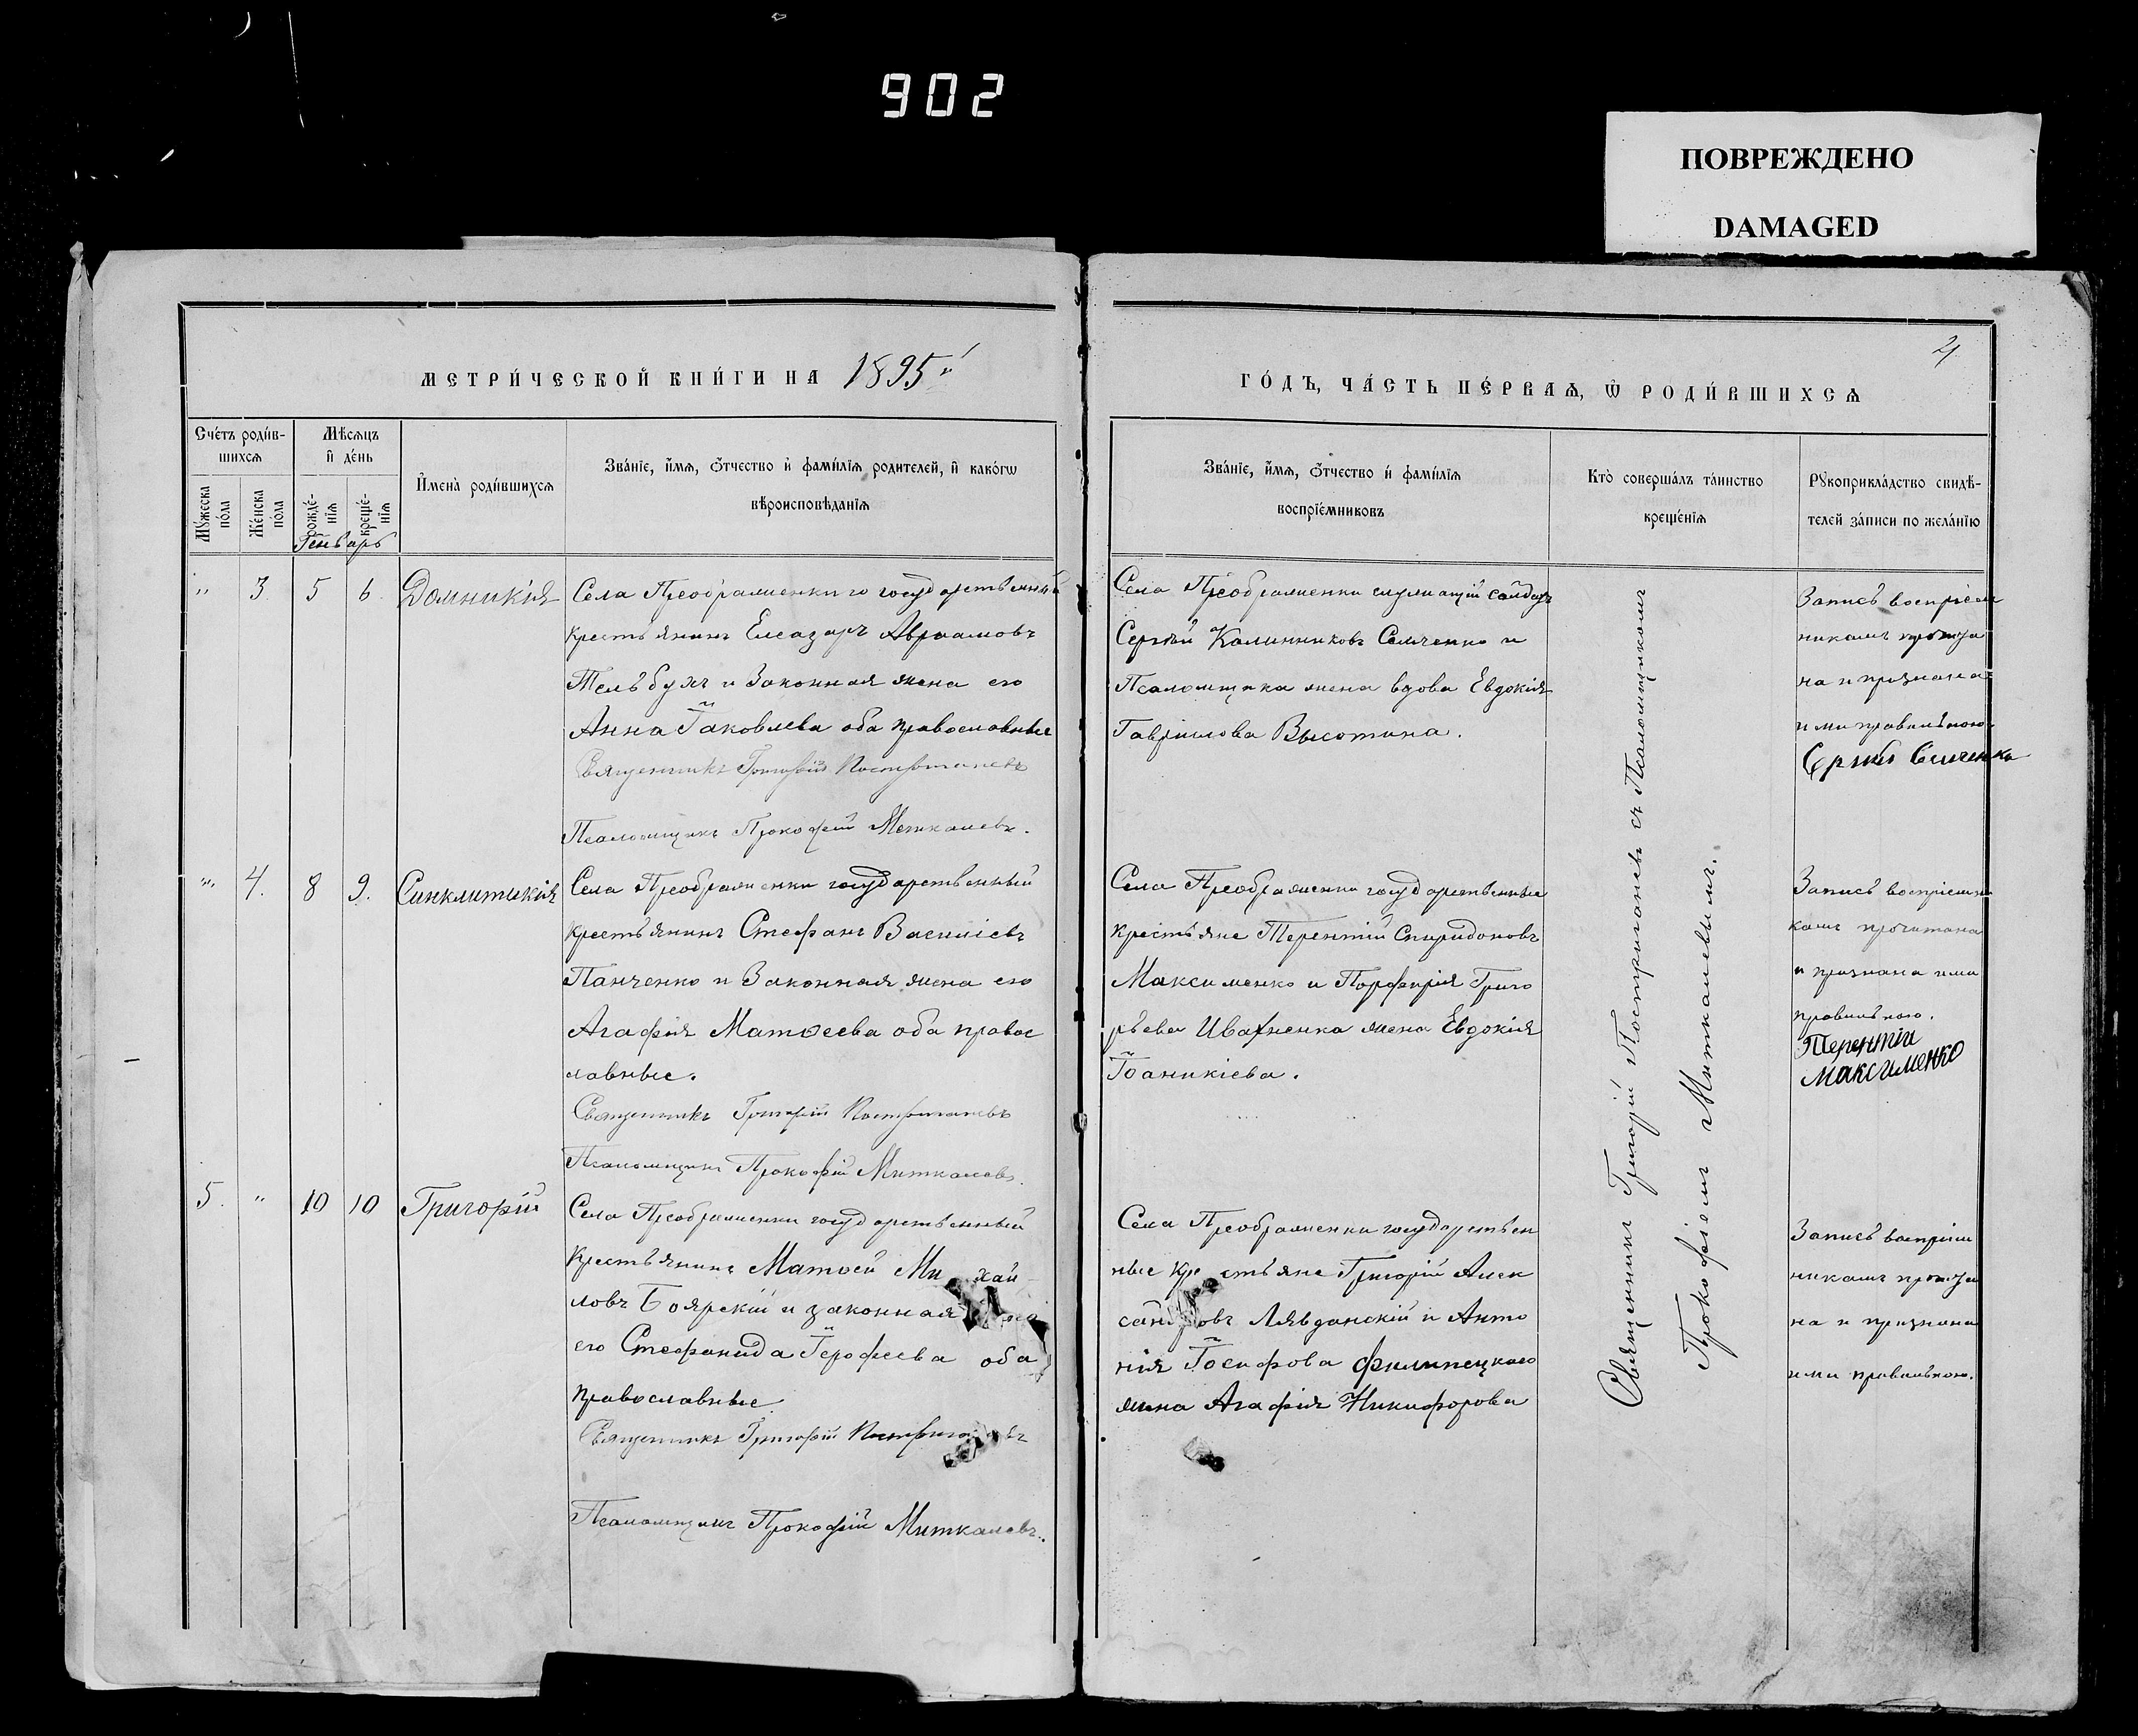 902
ПОВРЕЖДЕНО
DAMAGED
МЕТРИ́ЧЕСКОЙ КНИ́ГИ НА 1895й
ГО́ДЪ, ЧА́СТЬ ПЕ́РВАѦ, Ѡ҆ РОДИ́ВШИХСѦ
Сче́тъ роди́в-
шихсѧ
Мꙋ́жеска
по́ла
Же́нска
по́ла
Мѣ́сѧцъ
и҆ де́нь
рожде́-
нїѧ
креще́-
нїѧ
Генварь
И҆мена̀ роди́вшихсѧ
Зва́нїе, и҆́мѧ, ѻ҆́тчество и҆ фами́лїѧ родителей, и҆ како́гѡ
вѣроисповѣ́данїѧ
Зва́нїе, и҆́мѧ, ѻ҆́тчество и҆ фами́лїѧ
воспрїе́мниковъ
Кто̀ соверша́лъ та́инство
креще́нїѧ
Рꙋкоприкла́дство свидѣ́-
телей за́писи по жела́нїю
" 3. 5 6. Домникія
Села Преображенки государственный
крестьянинъ Елеазаръ Авраамовъ
Тельбухъ и Законная жена его
Анна Іаковлева оба православные
Священникъ Григорій
Псаломщикъ Прокофій Миткалевъ.
Села Преображенки служащій солдатъ
Сергѣй Калинниковъ Семченко и
Псаломщика жена вдова Евдокія
Гавріилова Высотина.
Запись воспріем
никамъ прочита
на и признана
ими правильною
Семченко
" 4. 8 9. Синклитикія
Села Преображенки государственный
крестьянинъ Стефанъ Василіевъ
Панченко и Законная жена его
Агафія Матѳеева оба правос
лавные.
Священникъ Григорій
Псаломщикъ Прокофій Миткалевъ.
Села Преображенки государственные
крестьяне Терентій Спиридоновъ
Максименко и Порфирія Григо
рьева Ивахненка жена Евдокія
Іоаникіева.
Запись воспріемни
камъ прочитана
и признана ими
правильною.
Терентій
Максименко
5. " 10 10 Григорій
Села Преображенки государственный
крестьянинъ Матѳей Михай
ловъ Боярскій и законная жена
его Стефанида Іерофеева оба
православные
Священникъ Григорій
Псаломщикъ Прокофій Миткалевъ.
Села Преображенки государствен
ные крестьяне Григорій Алек
сандровъ Лявданскій и Анто
нія Іосифова Филипецкаго
жена Агафія Никифорова
Запись воспріем
никамъ прочита
на и признана
ими правильною.
Священникъ Григорій съ Псаломщикомъ
Прокофіемъ Миткалевымъ.